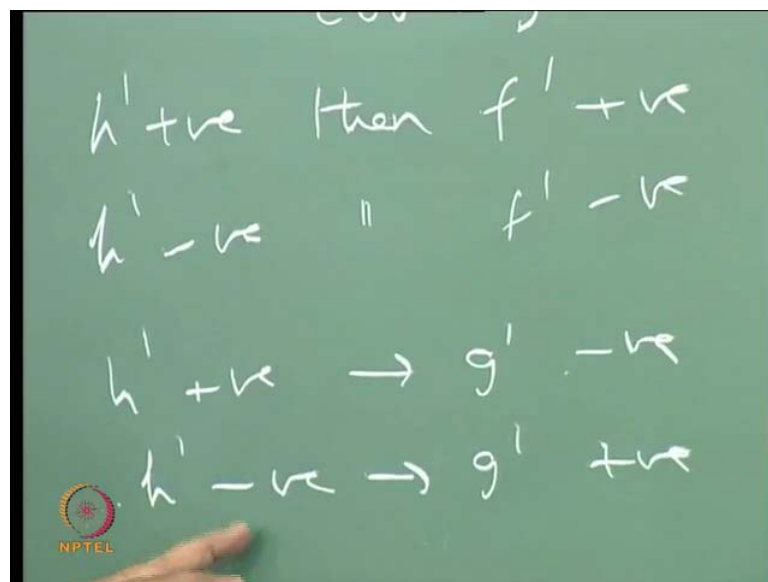 h' +ve then f' +ve
h' -ve " f' -ve
h' +ve → g' -ve
h' -ve → g' +ve
NPTEL